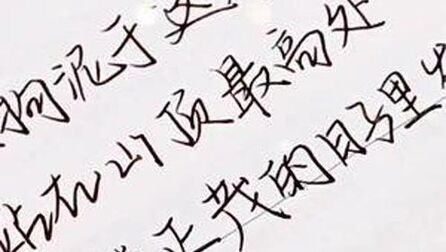 拘泥于
站在山顶最高处
正茂的日子里